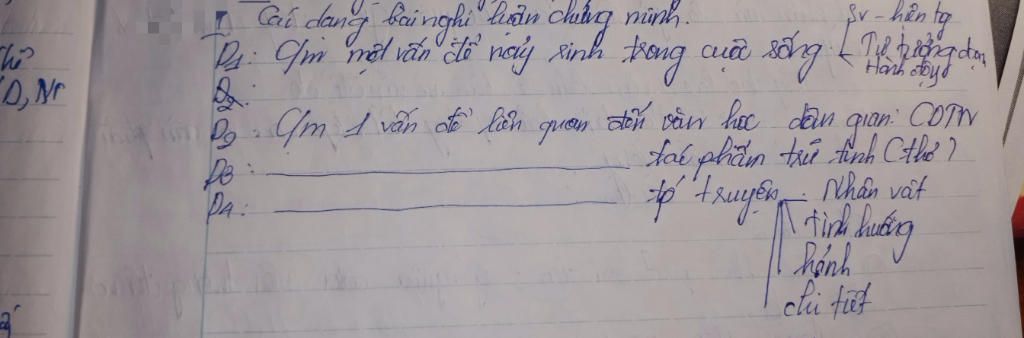 Các dạng bài nghị luận chứng minh.
Sv - hiện tg
D1: C/m một vấn đề nảy sinh trong cuộc sống
Tư tưởng đạo
Hành động
D2:
D2 C/m 1 vấn đề liên quan đến văn học dân gian: CDTN
D3: tác phẩm trữ tình (thơ)
D4: tp truyện - Nhân vật
tình huống
h/ảnh
chi tiết